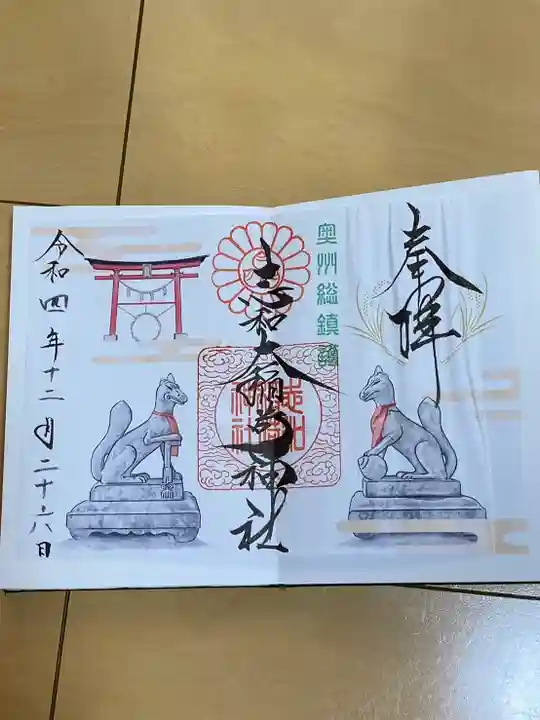 奉拝
奥州総鎮護
志和大稲荷神社
令和四年十二月二十六日